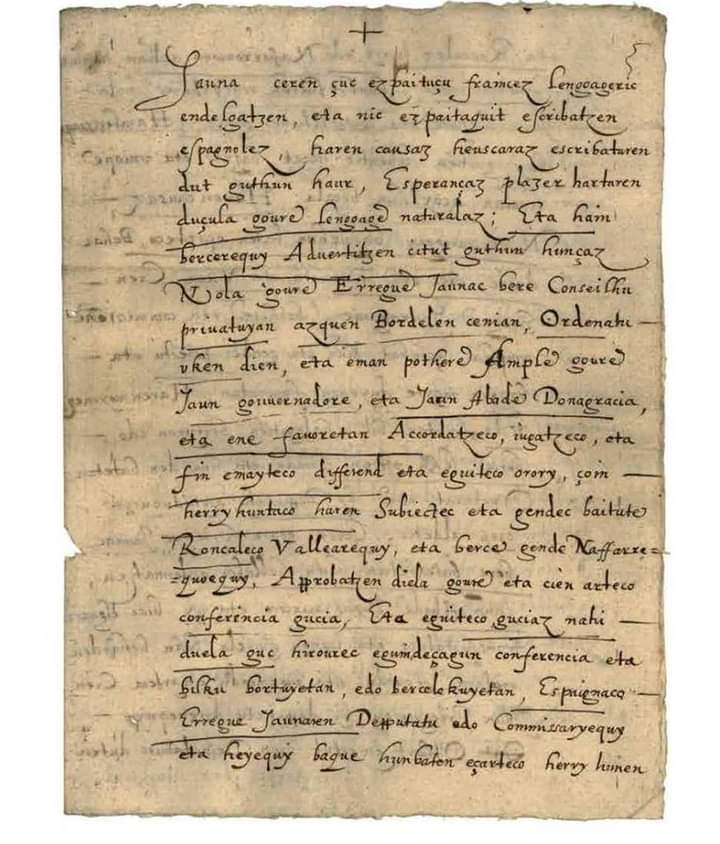 +
Jauna ceren çuc ezpaituçu francez lengoageric
endelgatzen, eta nic ezpaitaquit escribatzen
espagnolez, haren causaz heuscaraz escribaturen
dut guthun haur, Esperançaz plazer harturen
duçula goure lengoage naturalaz; Eta hain
bercerequy Advertitzen çitut guthun hunçaz
Nola goure Erregue Jaunac bere Conseilhu
privatuyan azquen Bordelen cenian, Ordenatu
vken dien, eta eman pothere Ample goure
Jaun gouvernadore, eta Jaun Abade Donagracia,
eta ene favoretan Accordatzeco, iugatzeco, eta
fin emayteco differend eta eguiteco orory, çoin
herry huntaco haren Subiectec eta gendec baitute
Roncaleco Vallearequy, eta berce gende Naffarre=
=quoequy, Approbatzen diela goure eta cien arteco
conferencia gucia, Eta eguiteco guciaz nahi
duela guc hirourec egumdeçagun conferencia eta
bilku bortuyetan, edo bercelekuyetan, Espaignaco
Erregue Jaunaren Deputatu edo Commissaryequy
eta heyequy baque hunbaton eçarteco herry hunen